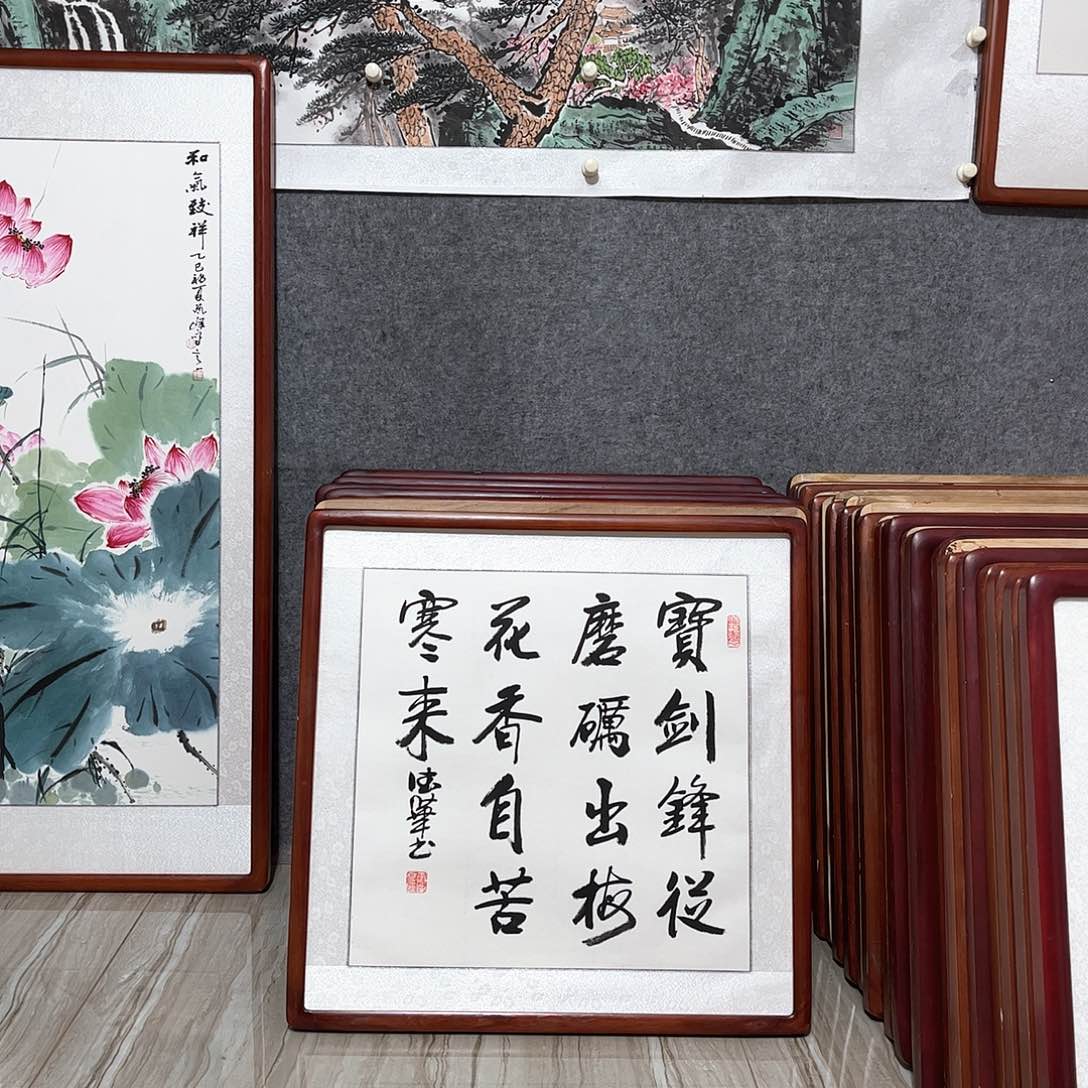 寶劍鋒從
磨礪出梅
花香自苦
寒来
和氣致祥
乙巳